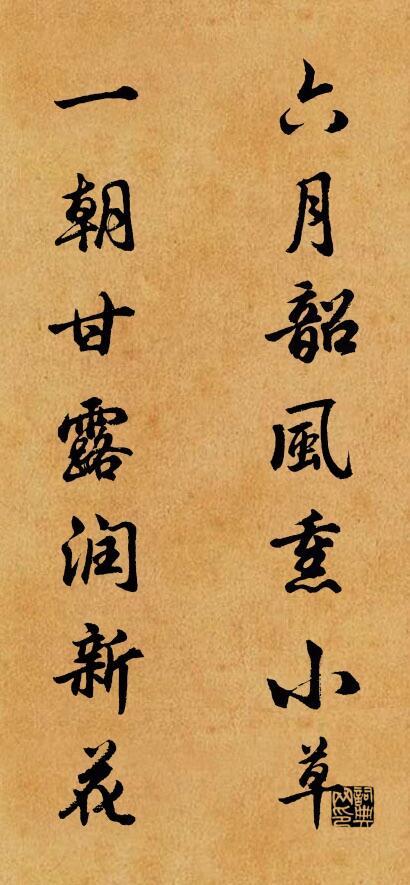 六月韶風熏小草
一朝甘露润新花